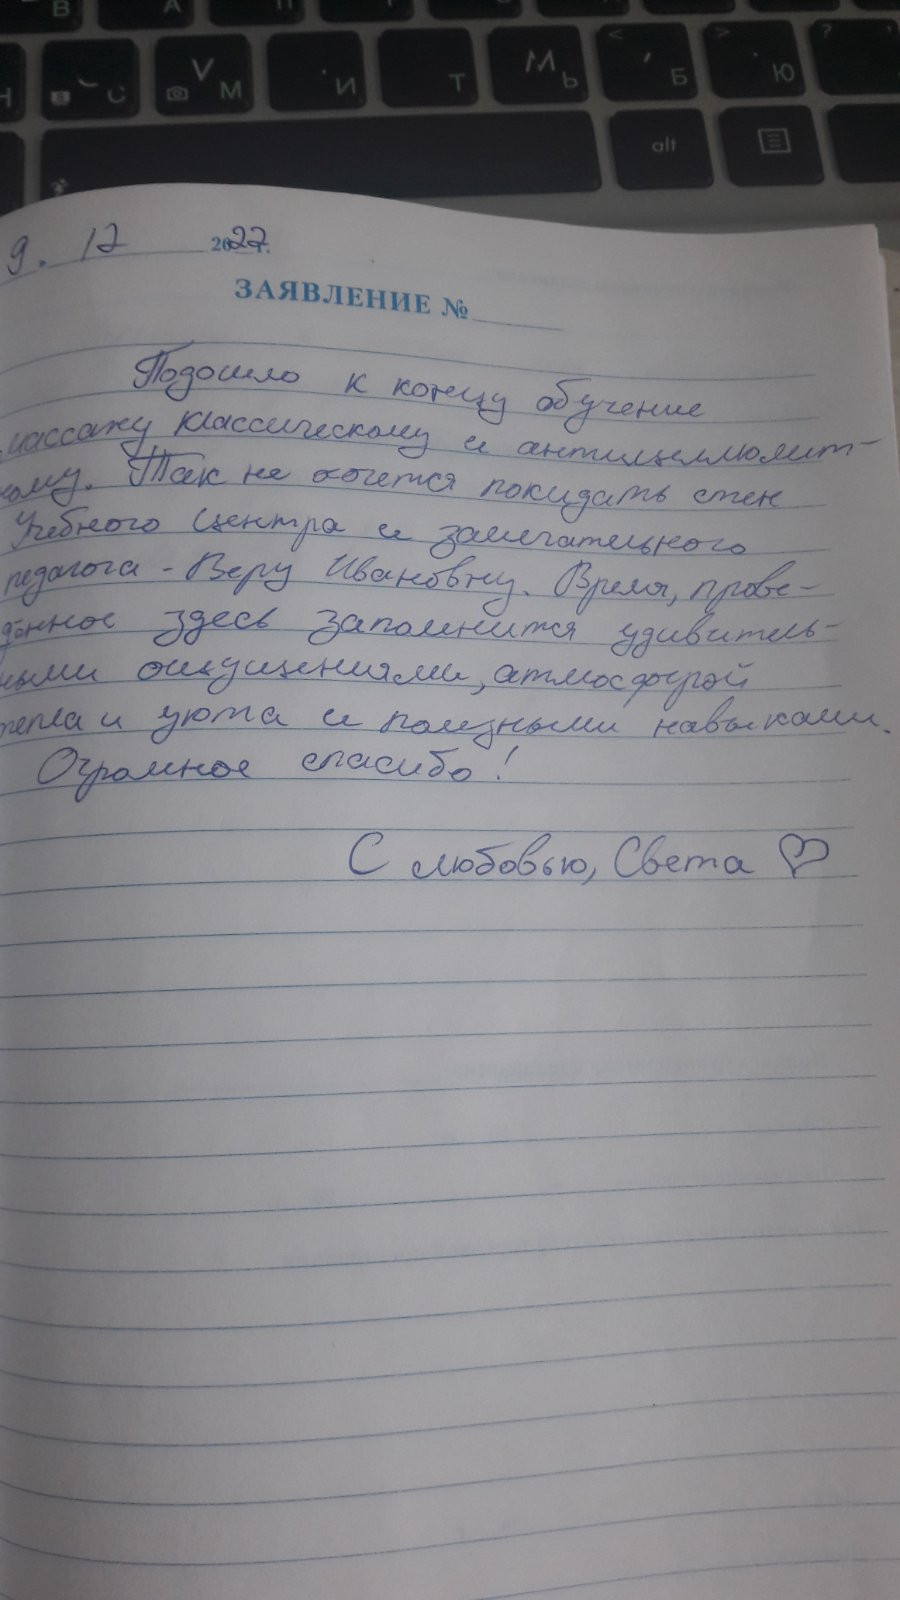 В А П
С V М И Т М Ь < , Б > . Ю ?
alt
9. 12 2022г.
ЗАЯВЛЕНИЕ №
Подошло к концу обучение
массажу классическому и антицеллюлит-
кому. Так не хочется покидать стен
Учебного Центра и замечательного
педагога - Веру Ивановну. Время, прове-
дённое здесь запомнится удивитель-
ными ощущениями, атмосферой
тепла и уюта и полезными навыками.
Огромное спасибо!
С любовью, Света ♡